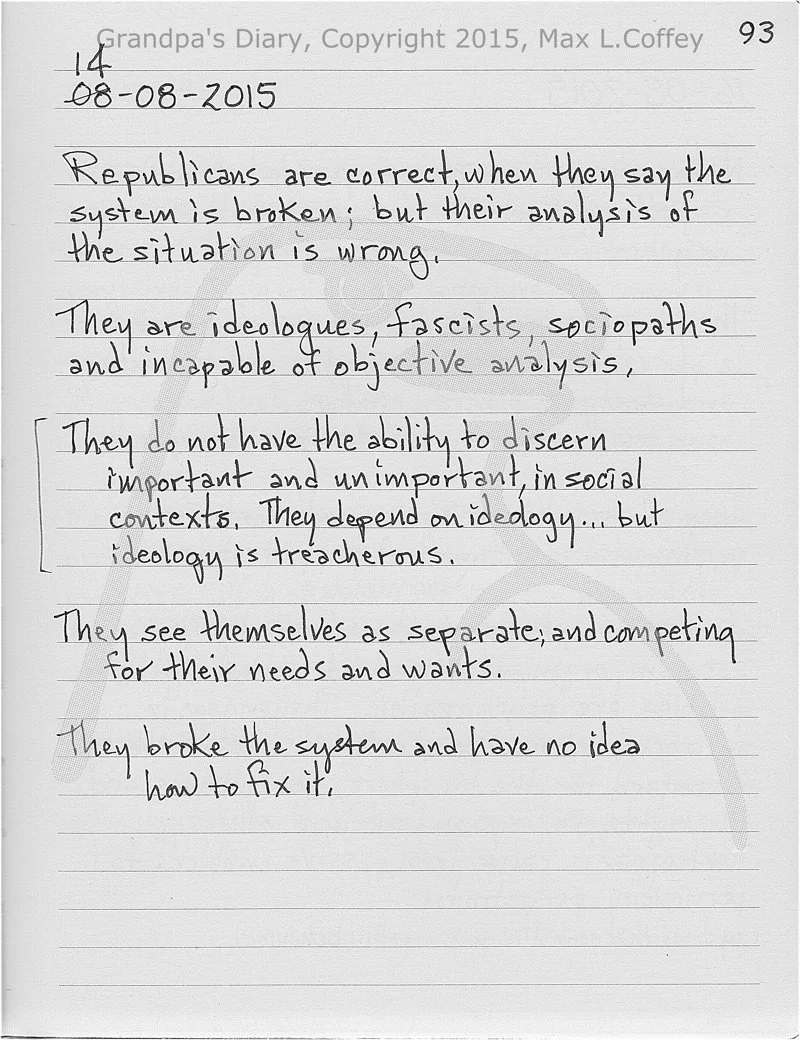 Grandpa's Diary, Copyright 2015, Max L.Coffey
93
14
08-08-2015
Republicans are correct, when they say the
system is broken; but their analysis of
the situation is wrong.
They are ideologues, fascists, sociopaths
and incapable of objective analysis,
They do not have the ability to discern
important and unimportant, in social
contexts. They depend on ideology... but
ideology is treacherous.
They see themselves as separate; and competing
for their needs and wants.
They broke the system and have no idea
how to fix it.